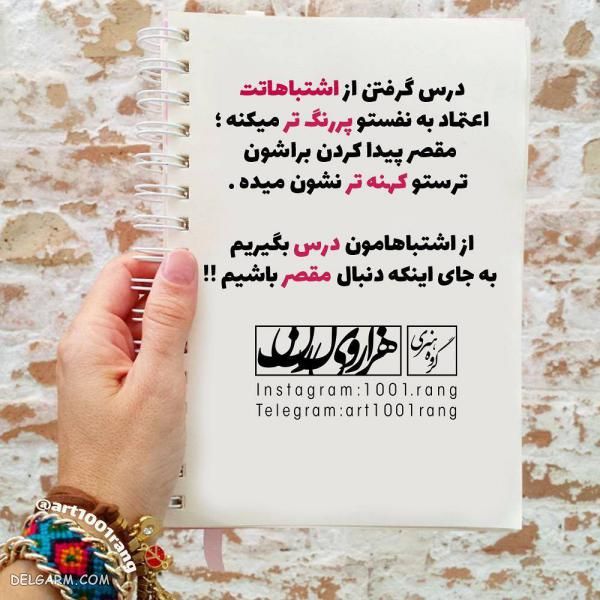 درس گرفتن از اشتباهاتت
اعتماد به نفستو پررنگ تر میکنه ؛
مقصر پیدا کردن براشون
ترستو کهنه تر نشون میده .
از اشتباهامون درس بگیریم
به جای اینکه دنبال مقصر باشیم !!
گروه هنری هزار و یک رنگ
Instagram:1001.rang
Telegram:art1001rang
@art1001rang
DELGARM.COM